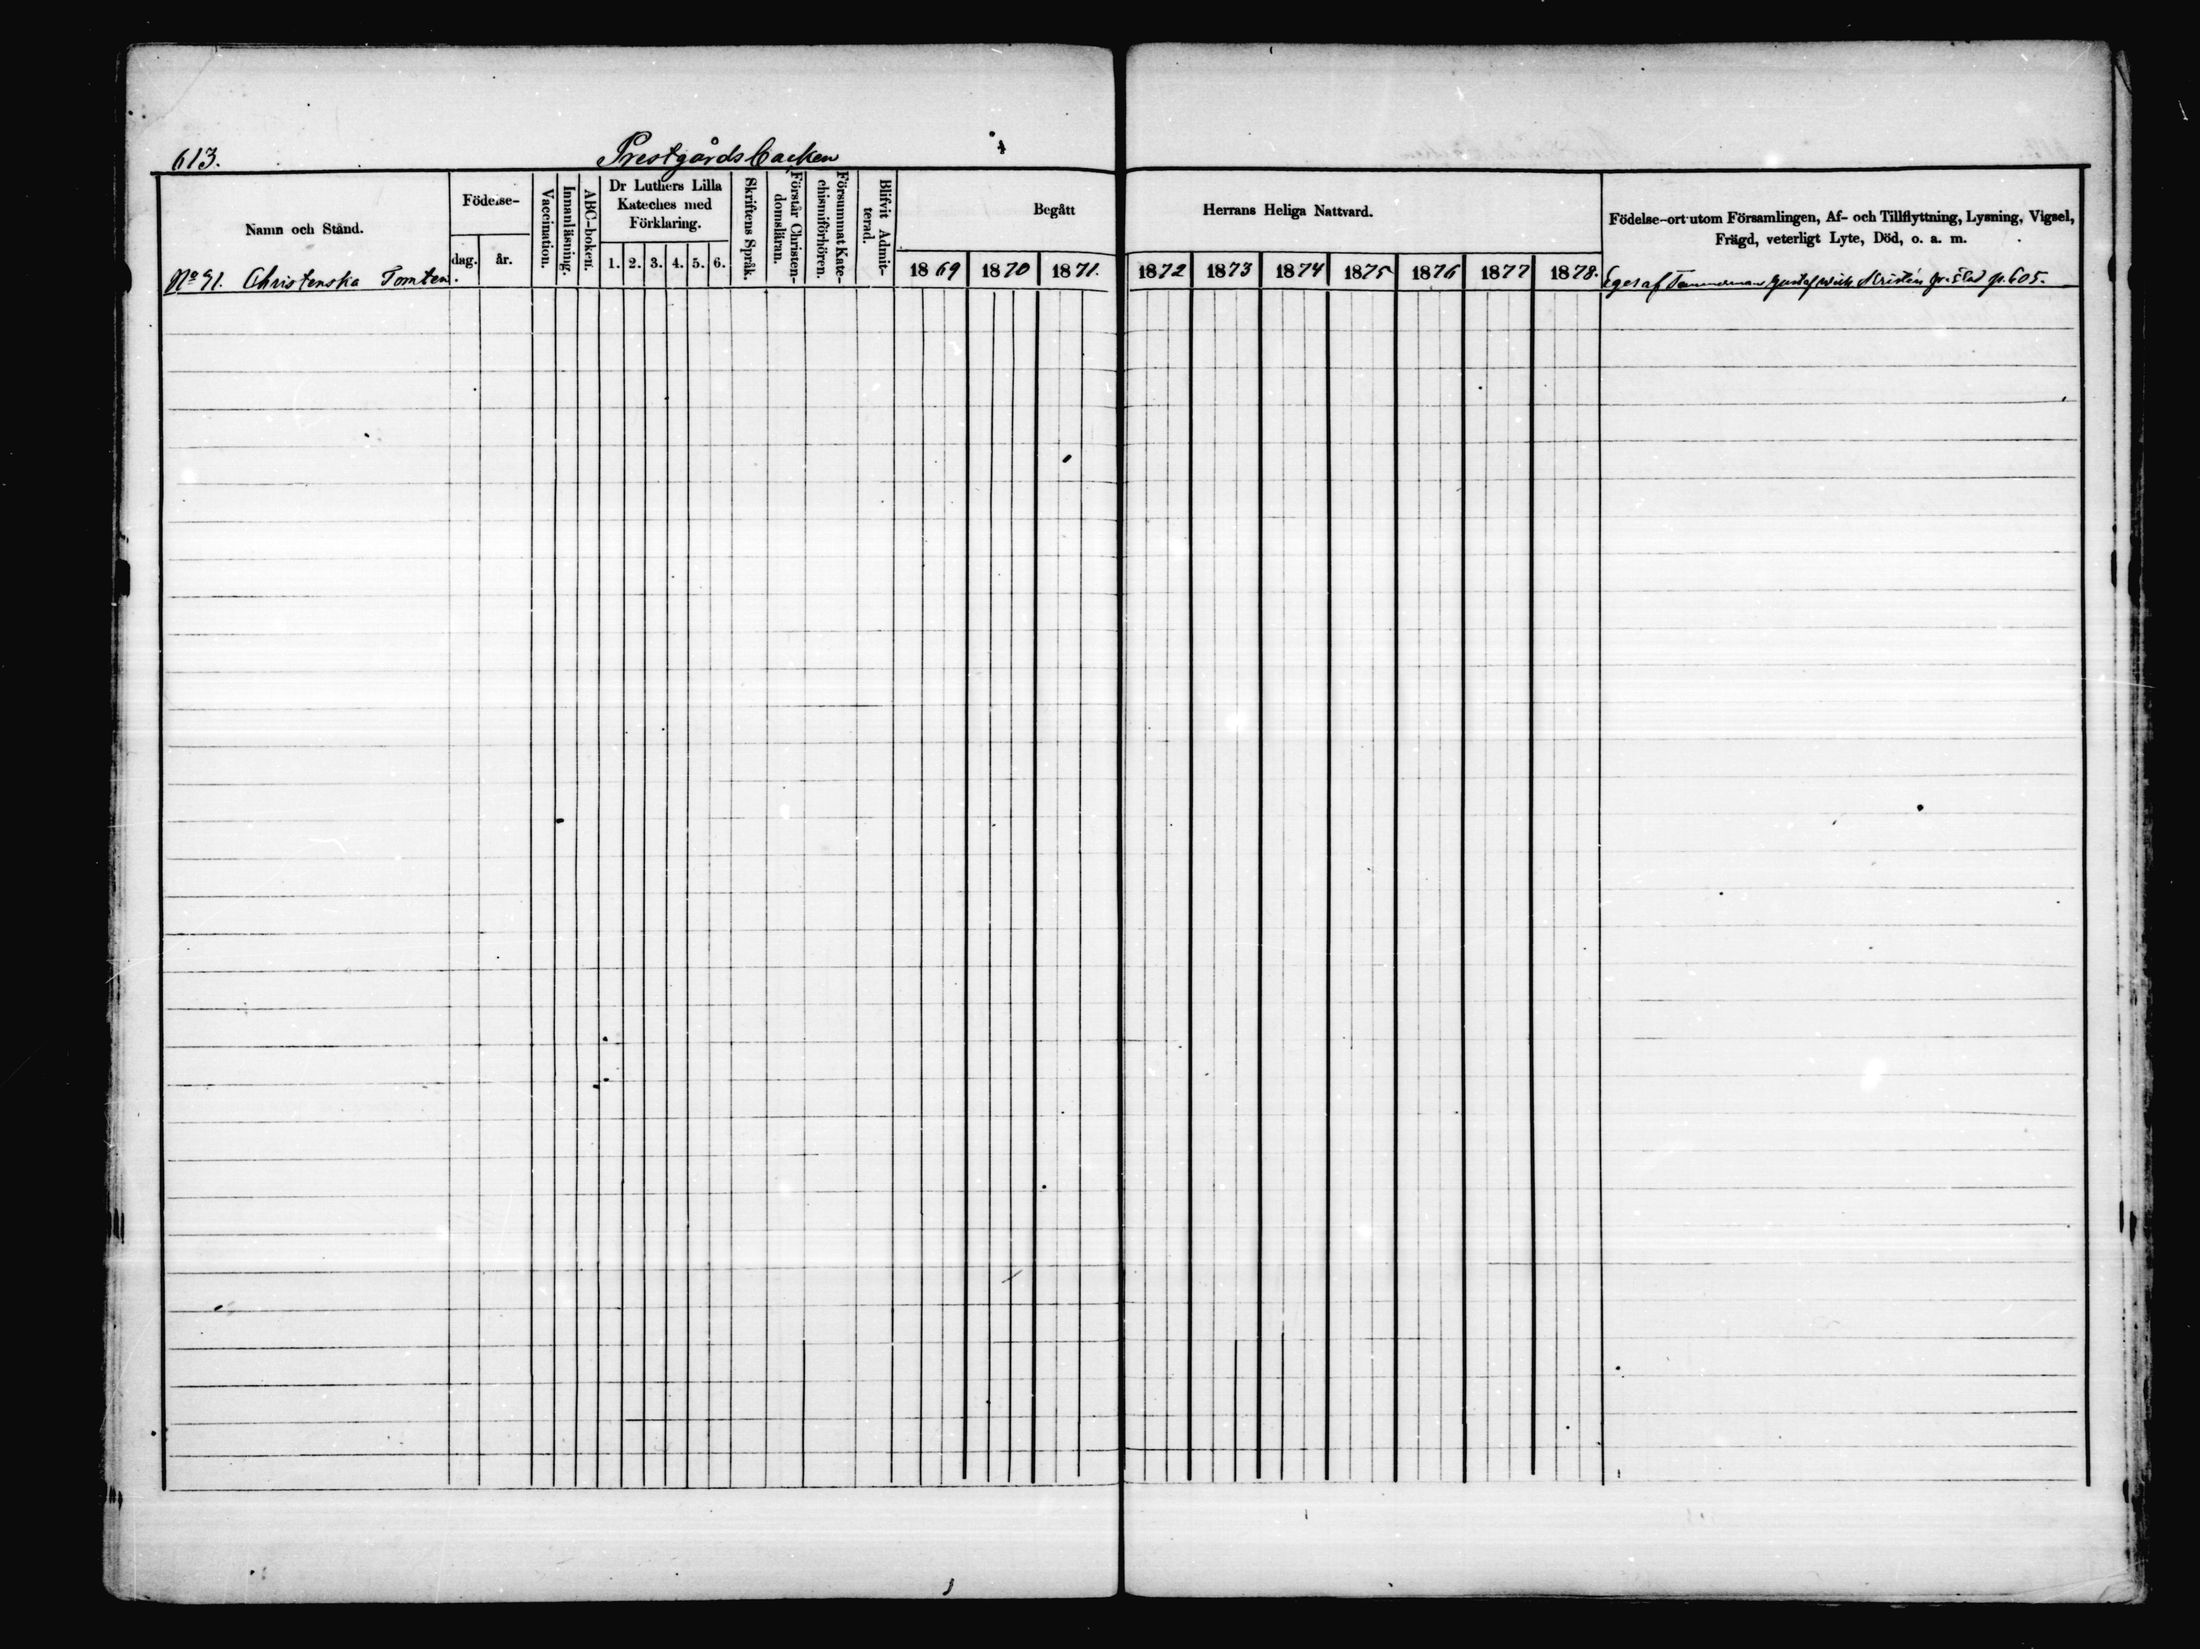 613.
Prestgårdsbacken
Namn och Stånd.
Födelse-
dag.
år.
Vaccination.
Innanläsning.
ABC-boken.
Dr Luthers Lilla
Kateches med
Förklaring.
1. 2. 3. 4. 5. 6.
Skriftens Språk.
Förstår Christen-
domsläran.
Försummat Kate-
chismiförhören.
Blifvit Admit-
terad.
Begått
Herrans Heliga Nattvard.
1869 1870 1871. 1872 1873 1874 1875 1876 1877 1878.
Födelse-ort utom Församlingen, Af- och Tillflyttning, Lysning, Vigsel,
Frägd, veterligt Lyte, Död, o. a. m.
No 91. Christenska Tomten.
Eges af Gustaf p. 605.